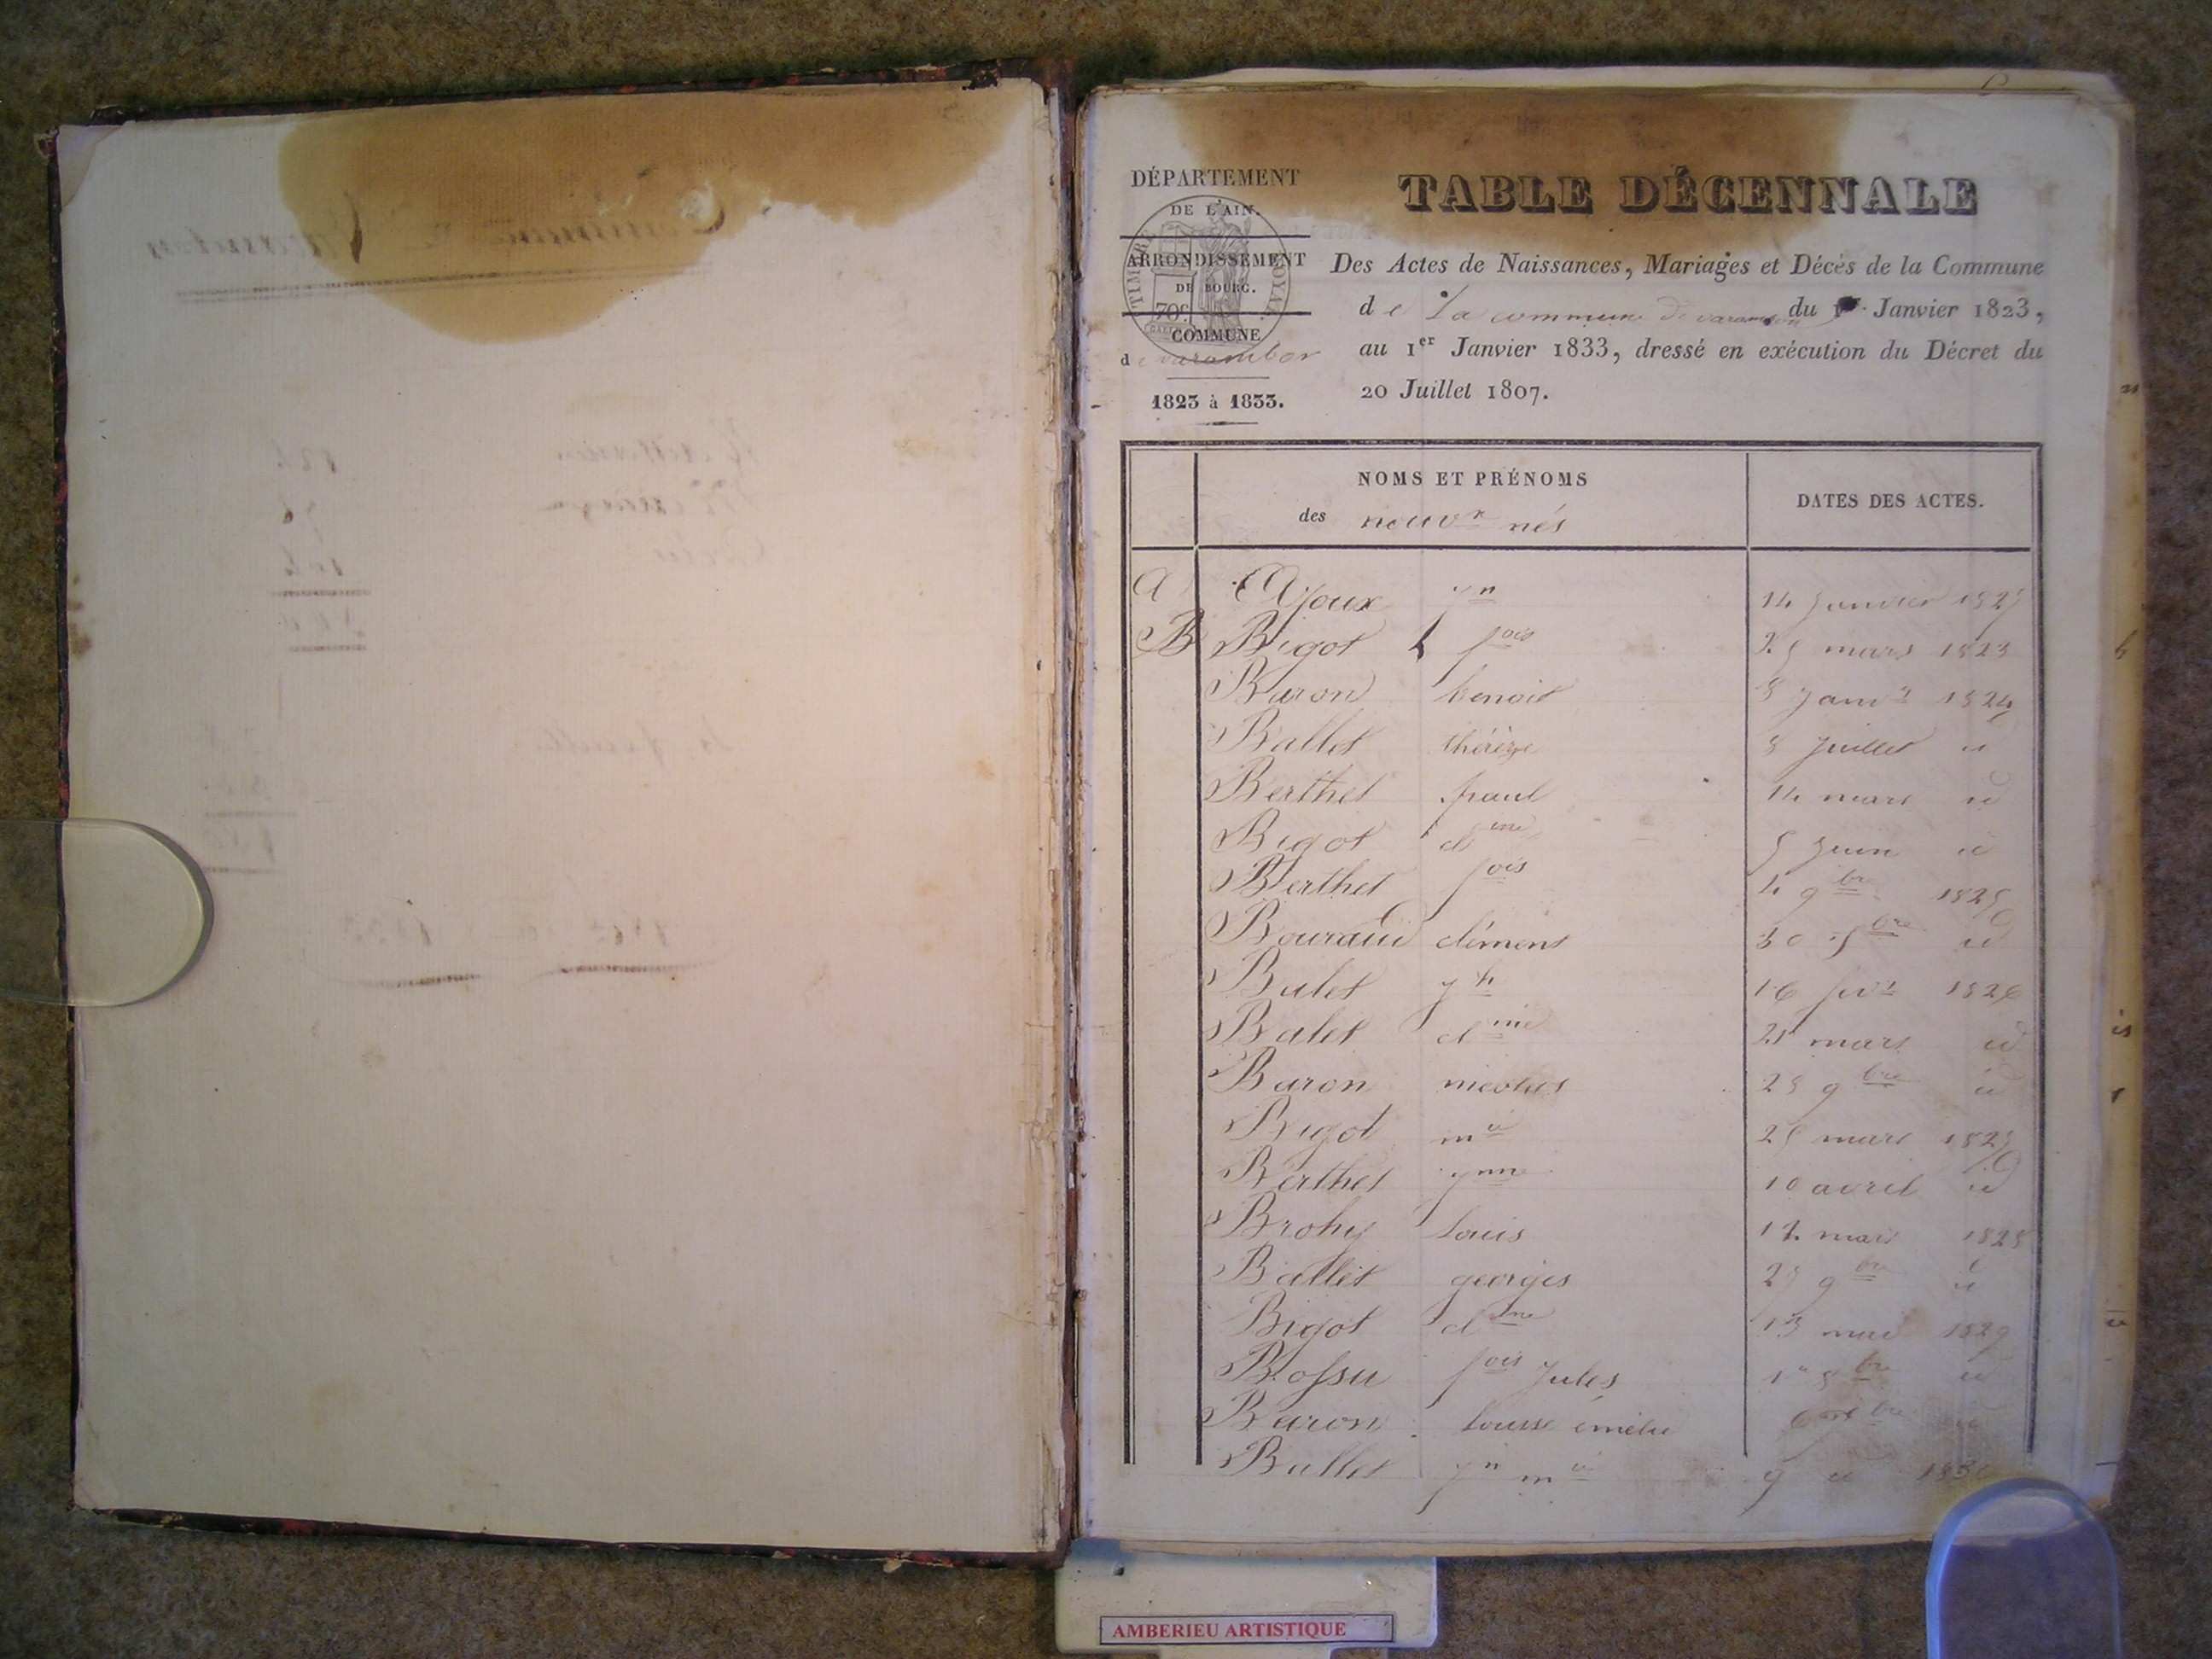 DÉPARTEMENT
DE L'AIN.
ARRONDISSEMENT
DE BOURG.
COMMUNE
de varambon
1823 à 1833.
TIMBRE ROYAL
70c
TABLE DÉCENNALE
Des Actes de Naissances, Mariages et Décès de la Commune
de La commune de varambon du 1er Janvier 1823,
au 1er Janvier 1833, dressé en exécution du Décret du
20 Juillet 1807.
NOMS ET PRÉNOMS
des nouvx nés
DATES DES ACTES.
A Ajoux jn 14 Janvier
B Bigot fois 25 mars 1823
Baron benoit 8 janvr 1824
Ballet thérèze 8 Juillet id
Berthet paul 14 mars id
Bigot clme 5 Juin id
Berthet fois 4 9bre 1825
Bouraud clément 30 id
Balet jh 16 fvr 1826
Balet clme 21 mars id
Baron nicolas 25 9bre id
Bigot mie 25 mars
Berthet jnne 10 avril id
Brohy louis 12 mars 1828
Ballet georges 9bre id
Bigot clme 13 mai 1829
Bossu fois Jules 1er 8bre id
Baron id
Ballet jn mie 9 id
AMBERIEU ARTISTIQUE